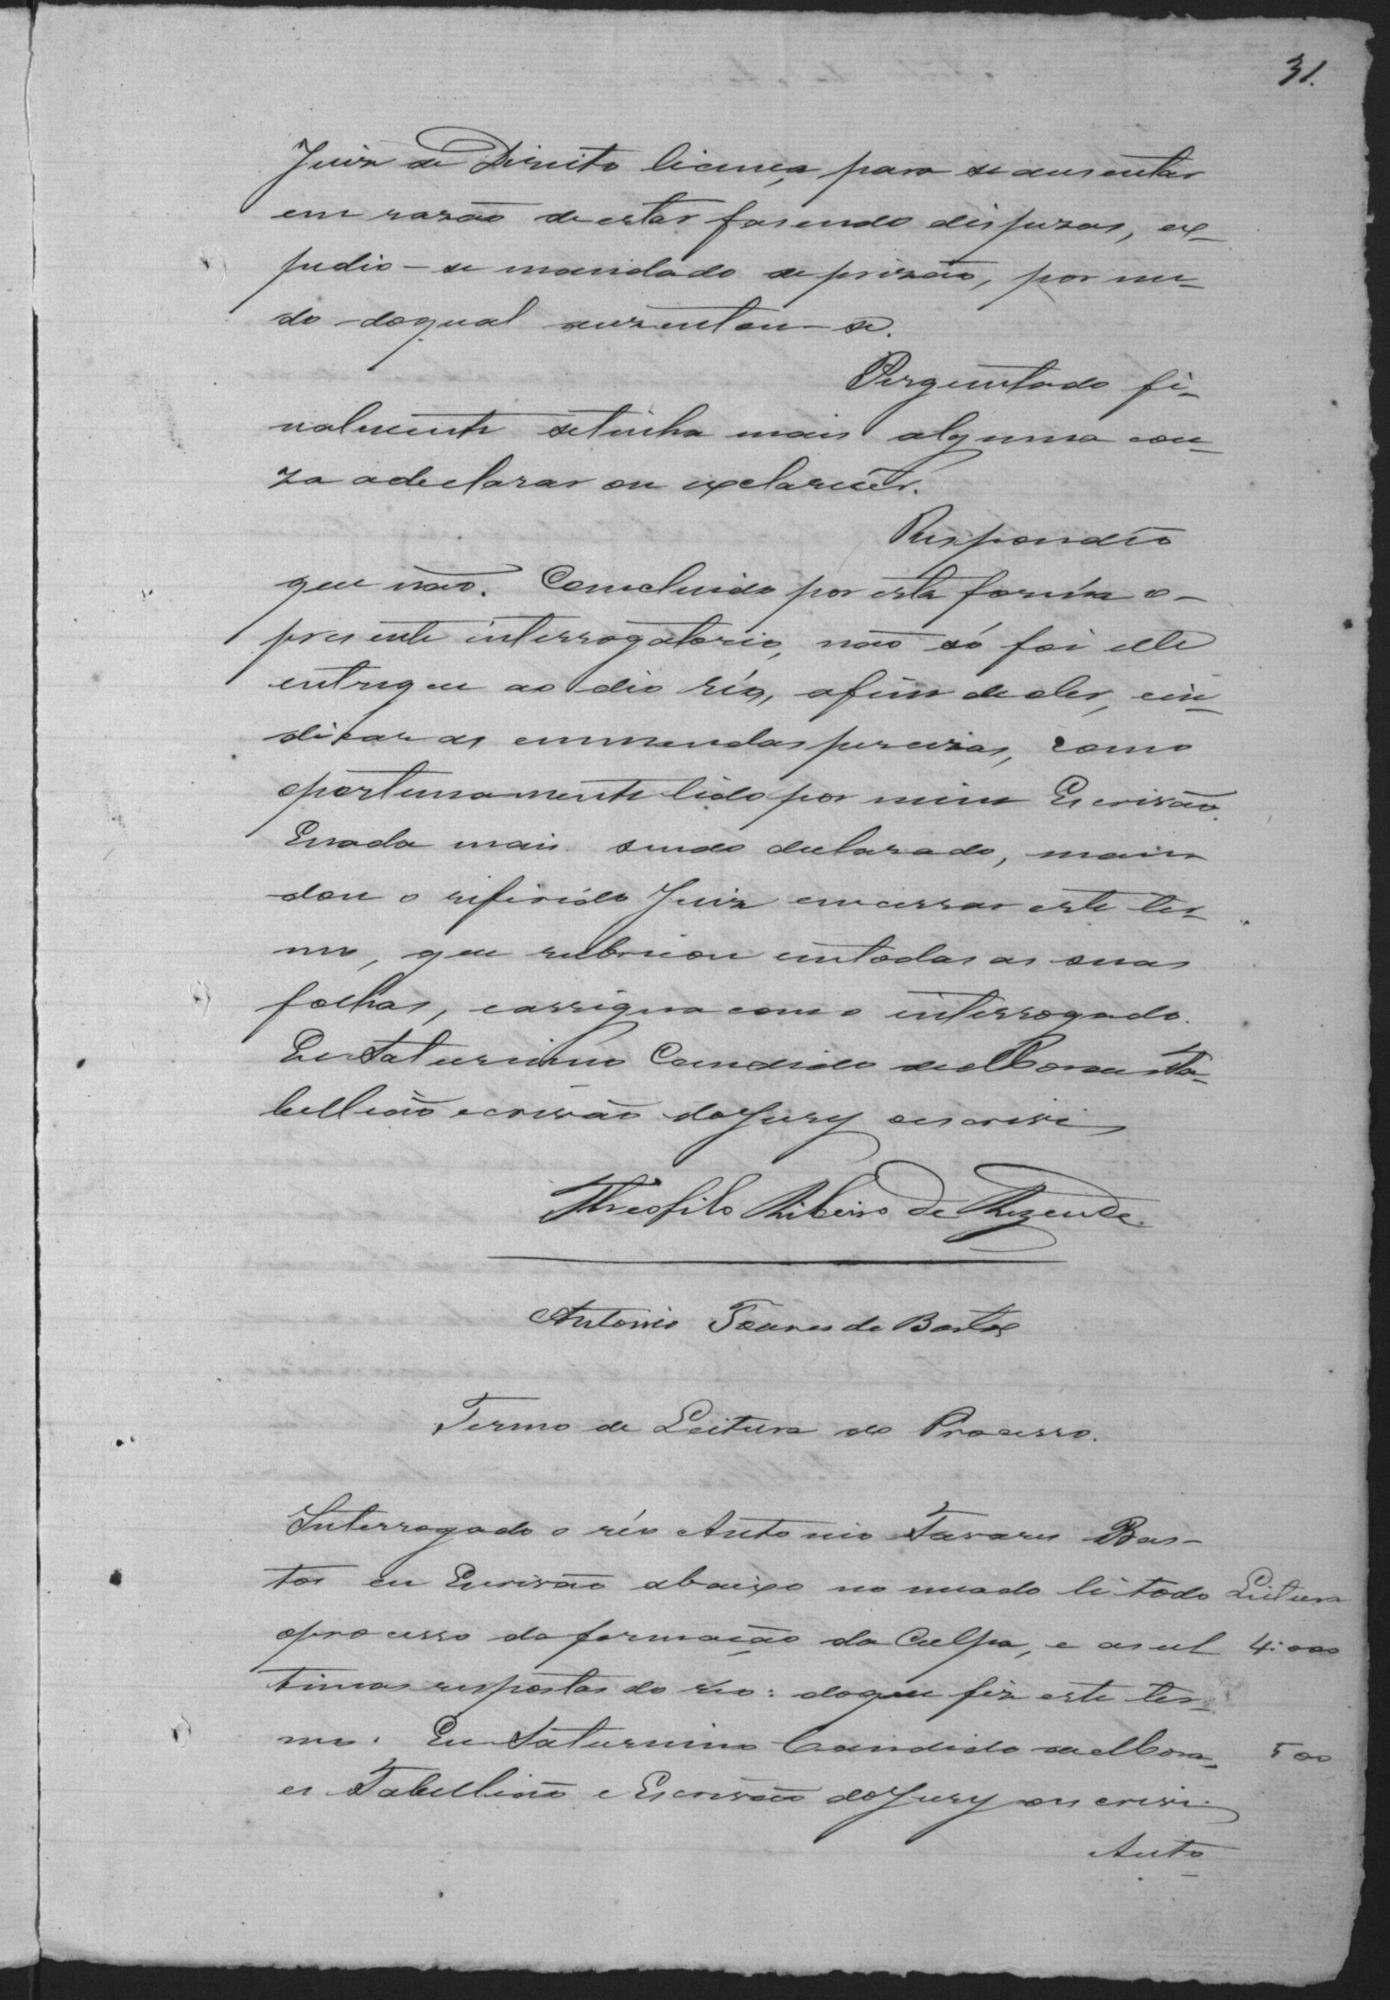 31.
Juiz de Direito licença para se ausentar
em rasão de estar fasendo dispezas, ex-
pedio-se mandado de prizão, por me-
do do qual auzentou-se.
Perguntado fi-
nalmente se tinha mais alguma cou-
za a declarar ou exclarecer.
Respondeo
que não. Concluido por esta forma o
presente interrogatorio, não só foi elle
entregue ao dio réo, afim de o ler, e in-
dicar as emmendas percizas, como
oportunamente lido por mim Escrivão.
E nada mais sendo declarado, man
dou o referido Juiz encerrar este ter-
mo, que rubricou em todas as suas
folhas, e assigna com o interrogado.
Eu Saturnino Candido de Moraes Ta-
bellião escrivão do Jury o escrivi
Theofilo Ribeiro de Rezende.
Antonio Tavares de Bastos
Termo de Leitura do Processo.
Interrogado o réo Antonio Tavares Bas-
tos eu Escrivão abaixo nomeado li todo
Leitura
o processo da formação da Culpa, e as ul
4:000
timas respostas do réo: do que fiz este ter-
mo. Eu Saturnino Candido de Mora-
500
es Tabellião e Escrivão do Jury o escrivi.
Auto